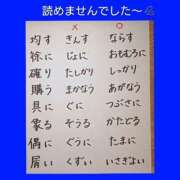 読めませんでした〜
× ○
均す きんす ならす
徐に じょに おもむろに
確り たしかり しっかり
購う まかなう あがなう
具に ぐに つぶさに
象る そうる かたどる
偶に ぐうに たまに
屑い くずい いさぎよい